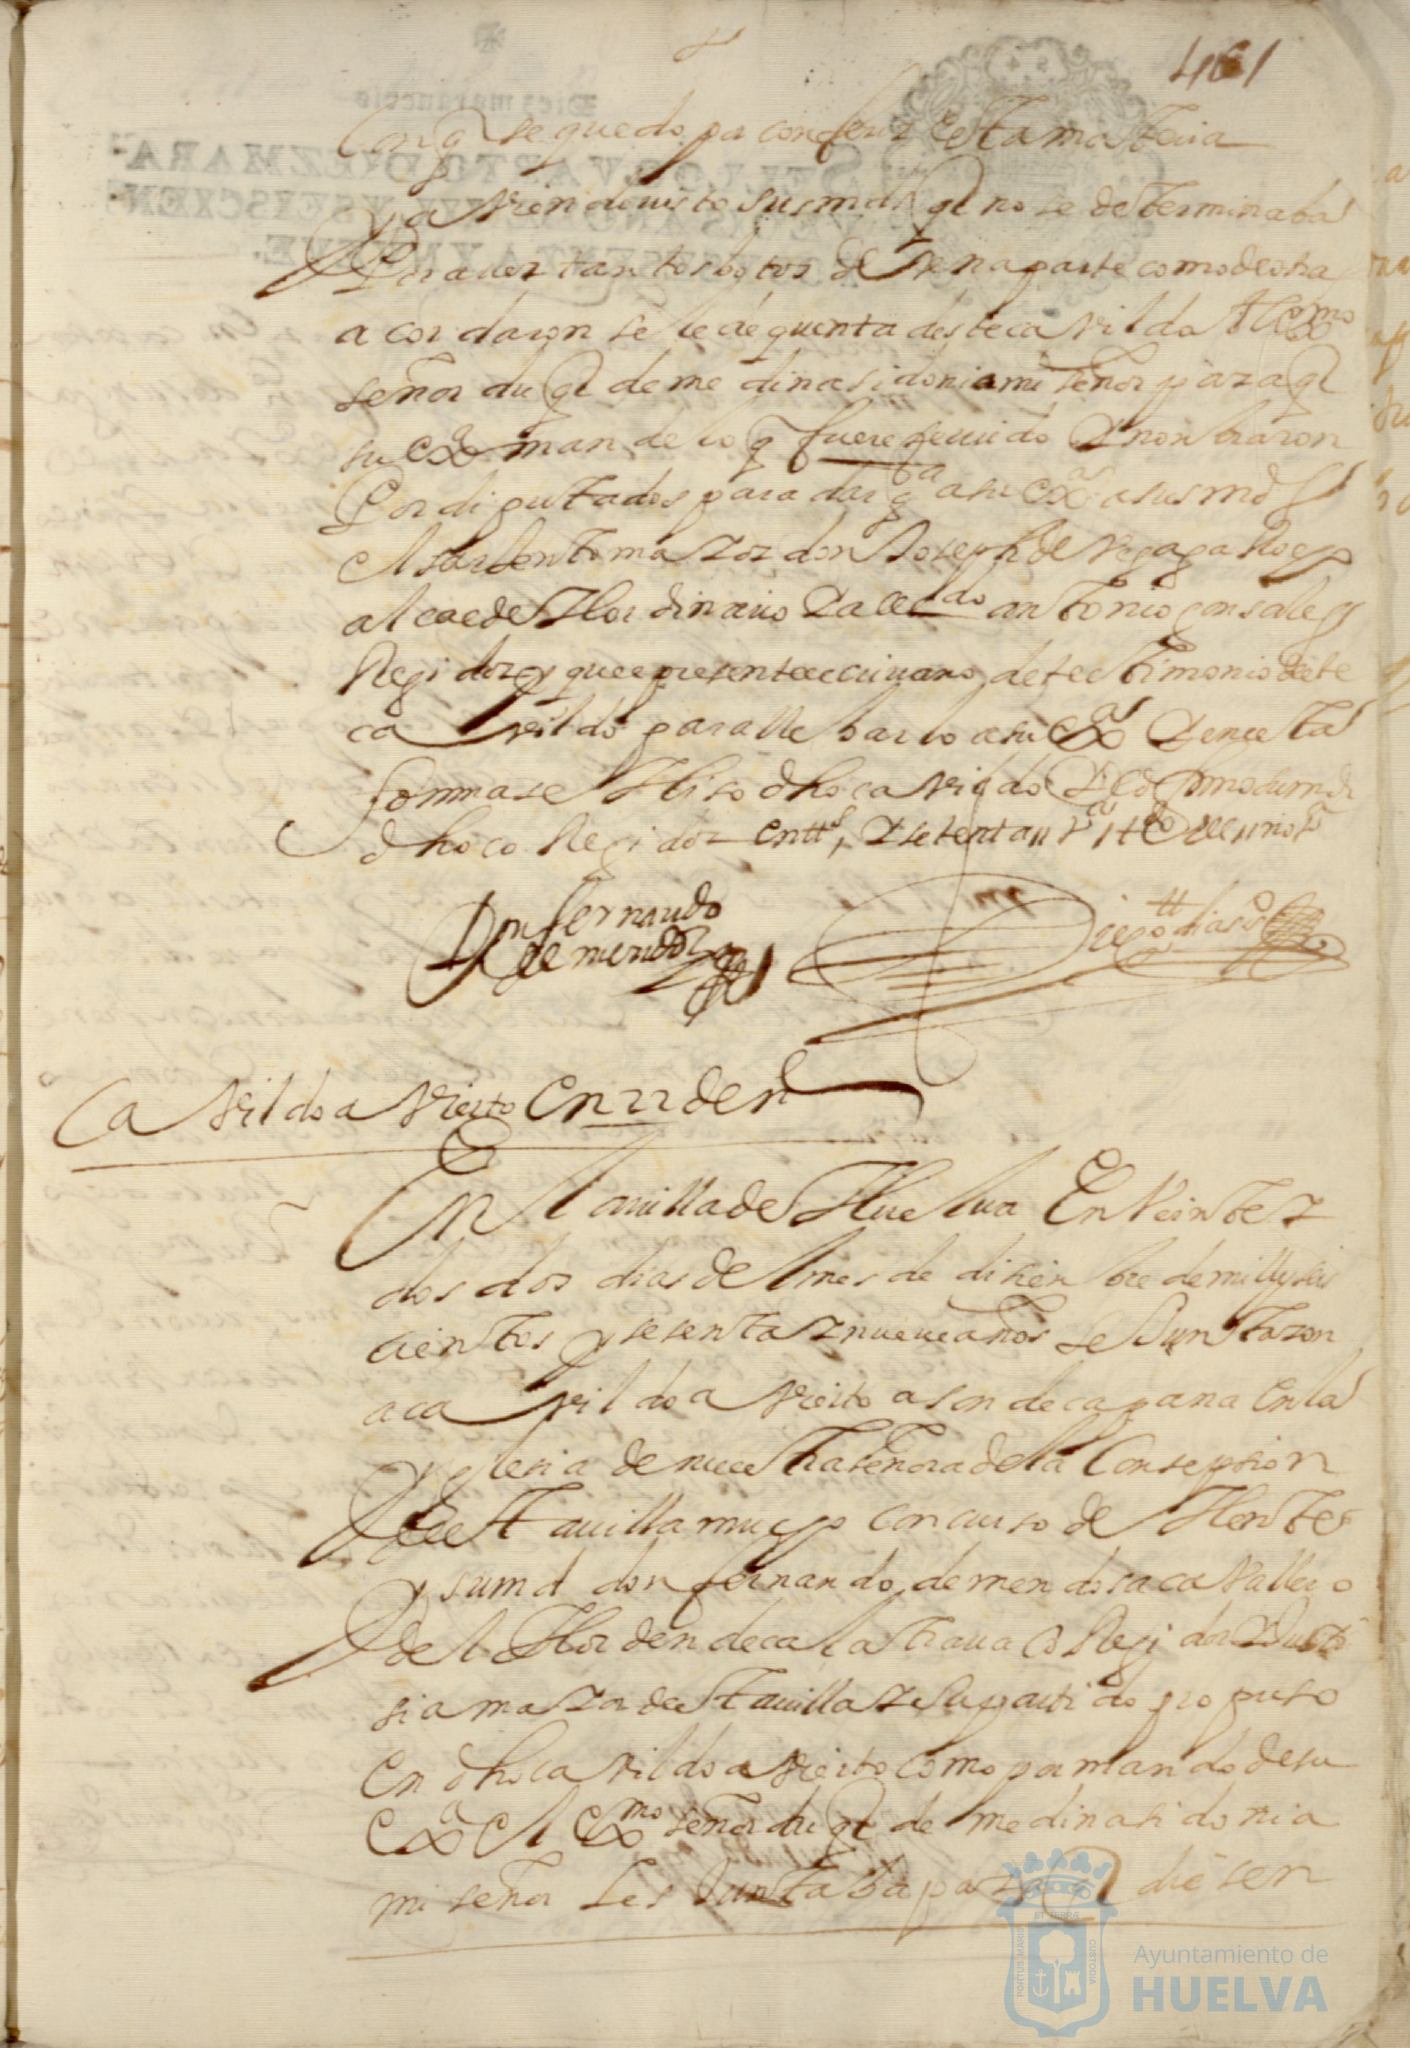 461
Con q se quedo por conferir esta materia
y aviendo visto sus mds q no se determinaba
Por aver tantos botos de vna parte como de otra
acordaron se le dé quenta deste cavildo Al exmo
señor duq de medinasidonia mi señor para q
su exa mande lo q fuere servido Y nonbraron
Por diputados para dar qta a su exa a sus mds
el sarjento mayor don Joseph de vega gallego
alcalde Hordinario Y al licdo antonio gonsales
Regidor y que el presente escrivano de testimonio deste
cavildo para llebarlo a su exa Y en esta
forma se Hiso dho cavildo Y lo firmo su md
dho co Regidor
Don fernando
de mendoza
diego dias
Cavildo avierto en 22 de
En la villa de Huelva En Veinte y
dos dias del mes de disienbre de mill y seis
cientos y sesenta y nueve años se Juntaron
a cavildo avierto a son de canpana En la
yglesia de nuestra señora de la Consepsion
desta villa mucho concurso de Jente
y su md don fernando de mendosa cavallero
del Horden de calatrava Co Regidor Y Justi
sia mayor desta villa y su partido propuso
En dho cavildo avierto como por mandado de su
exa el exmo señor duq de medinasidonia
mi señor Les Juntaba para q diesen
Ayuntamiento de
HUELVA